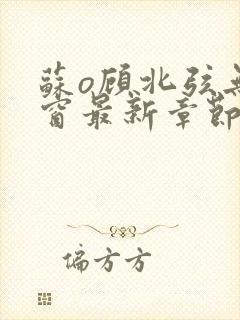 蘇o顾北弦無
窗最新章節
偏方方